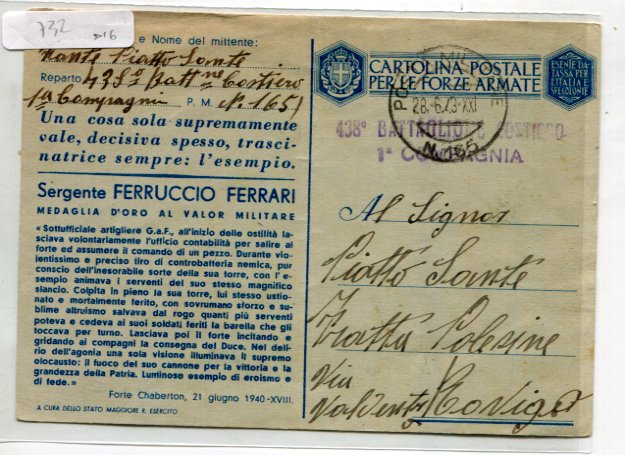 732
16
e Nome del mittente:
Piatto Sante
Reparto 438º Batt ne Costiero
1ª Compagnia P. M. Nº 165
Una cosa sola supremamente
vale, decisiva spesso, trasci-
natrice sempre: l'esempio.
Sergente FERRUCCIO FERRARI
MEDAGLIA D'ORO AL VALOR MILITARE
« Sottufficiale artigliere G.a.F., all'inizio delle ostilità la-
sciava volontariamente l'ufficio contabilità per salire al
forte ed assumere il comando di un pezzo. Durante vio-
lentissimo e preciso tiro di controbatteria nemica, pur
conscio dell'inesorabile sorte della sua torre, con l'e-
sempio animava i serventi del suo stesso magnifico
slancio. Colpita in pieno la sua torre, lui stesso ustio-
nato e mortalmente ferito, con sovrumano sforzo e su-
blime altruismo salvava dal rogo quanti più serventi
poteva e cedeva ai suoi soldati feriti la barella che gli
toccava per turno. Lasciava poi il forte incitando e
gridando ai compagni la consegna del Duce. Nel deli-
rio dell'agonia una sola visione illuminava il supremo
olocausto: il fuoco del suo cannone per la vittoria e la
grandezza della Patria. Luminoso esempio di eroismo e
di fede. »
Forte Chaberton, 21 giugno 1940-XVIII.
A CURA DELLO STATO MAGGIORE R. ESERCITO
CARTOLINA POSTALE
PER LE FORZE ARMATE
ESENTE DA
TASSA PER
L'ITALIA E
SUE COLONIE
28.6.43.XXI
N. 165
438º BATTAGLIONE COSTIERO
1ª COMPAGNIA
Al Signor
Piatto Sante
Fratta Polesine
Via
Rovigo